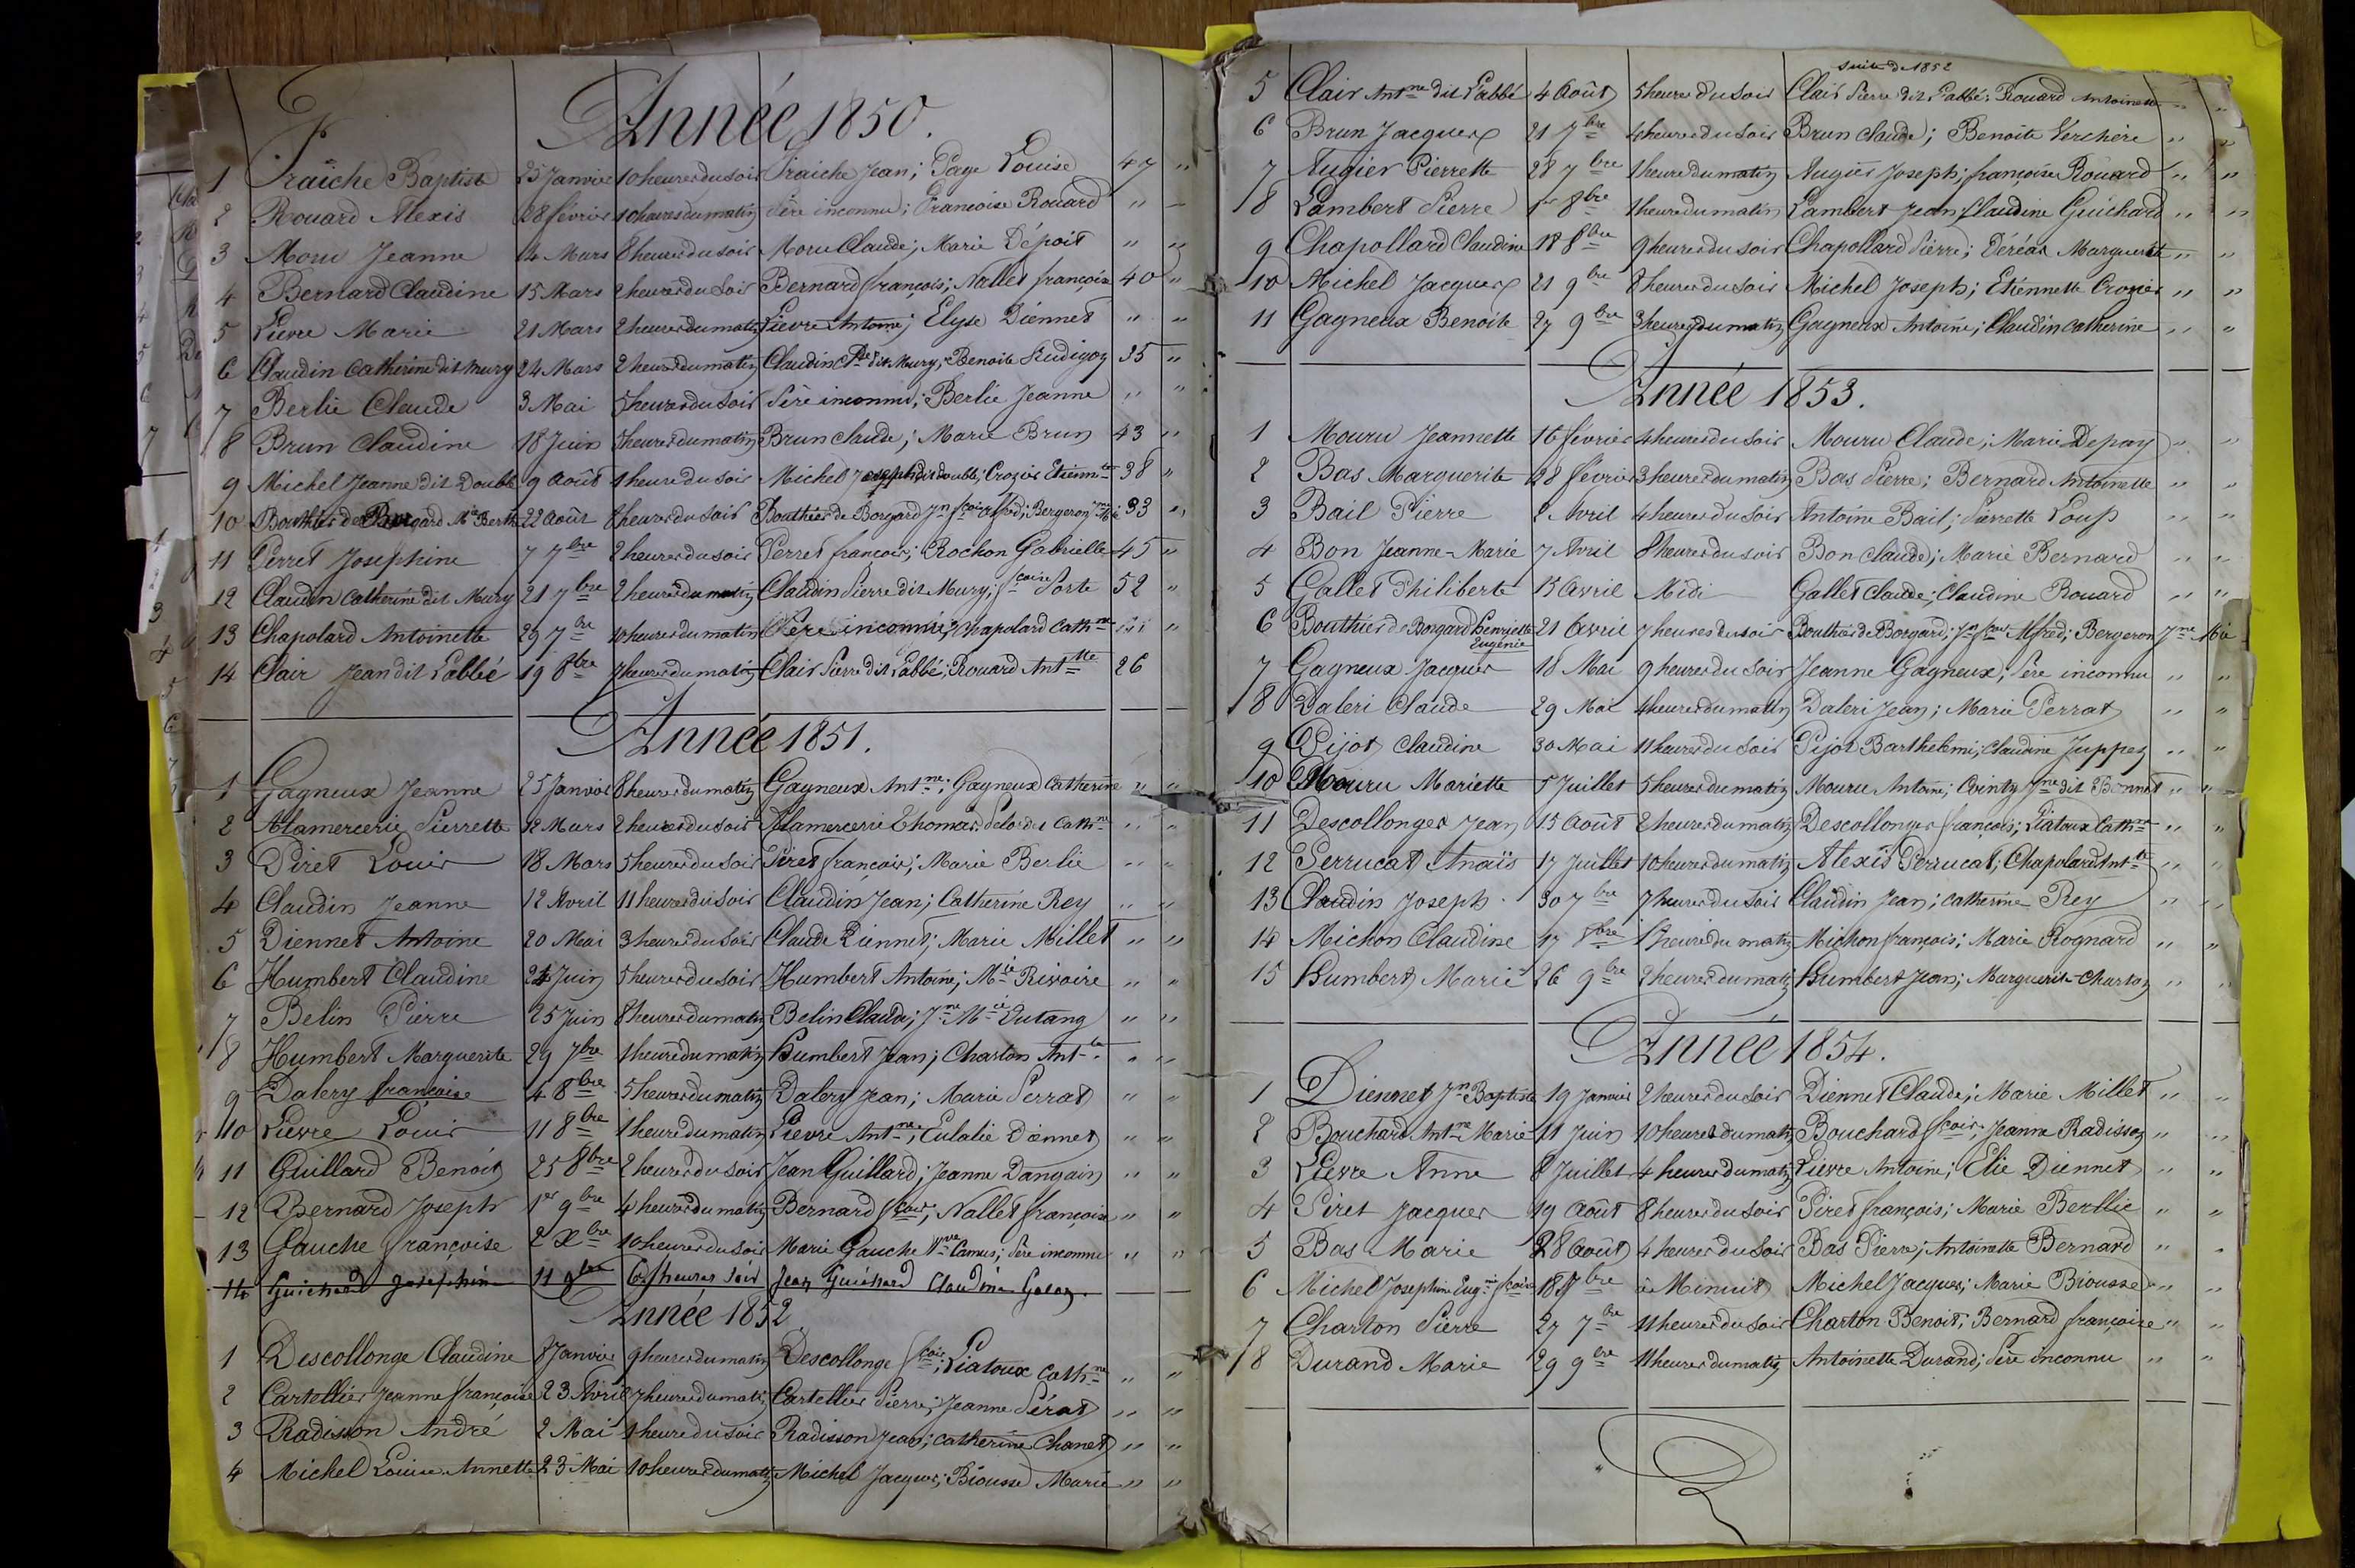 Année 1850.
1 Fraîche Baptiste 25 Janvier 10 heures du soir Fraiche Jean; Page Louise 47 "
2 Rouard Alexis 28 février 10 heures du matin Père inconnu; Francoise Rouard " "
3 Moru Jeanne 4 Mars 8 heures du soir Moru Claude; Marie Dépoit " "
4 Bernard Claudine 15 Mars 2 heures du soir Bernard françois; Nallet françoise 40 "
5 Lièvre Marie 21 Mars 2 heures du matin Lievre Antoine; Elyse Diennet " "
6 Claudin Catherine dit Mury 24 Mars 2 heures du matin Claudin Cde dit Mury; Benoite 35 "
7 Berlie Claude 3 Mai 5 heures du soir Père inconnu; Berlie Jeanne " "
8 Brun Claudine 18 Juin 5 heures du matin Brun claude; Marie Brun 43 "
9 Michel Jeanne dit Double 9 Août 1 heure du soir Michel Joseph dit double; Crozier Etiennte 38 "
10 Bouthier de Borgard Mie Berthe 22 Août 8 heures du soir Bouthier de Borgard Jn fcois alfred; Bergeron Jne Mie 33 "
11 Perret Josephine 7 7bre 2 heures du soir Perret françois; Rochon Gabrielle 45 "
12 Claudin Catherine dit Mury 21 7bre 2 heures du matin Claudin Pierre dit Mury; fcoise Porte 52 "
13 Chapolard Antoinette 29 7bre 10 heures du matin Père inconnu; Chapolard Cathne "
14 Clair Jean dit L'abbé 19 8bre 7 heures du matin Clair Pierre dit L'abbé; Rouard Antte 26
Année 1851.
1 Gagneux Jeanne 25 Janvier 8 heures du matin Gagneux Antne; Gagneux Catherine " "
2 Alamercerie Pierrette 12 Mars 2 heures du soir Alamercerie Thomas; Cathne " "
3 Piret Louis 18 Mars 5 heures du soir Piret françois; Marie Berlie " "
4 Claudin Jeanne 12 Avril 11 heures du soir Claudin Jean; Catherine Rey " "
5 Diennet Antoine 20 Mai 3 heures du soir Claude Diennet; Marie Millet " "
6 Humbert Claudine 24 Juin 5 heures du soir Humbert Antoine; Mie Rivoire " "
7 Belin Pierre 25 Juin 8 heures du matin Belin Claude; Jne Mie Dutang " "
8 Humbert Marguerite 29 7bre 1 heure du matin Humbert Jean; Charton Antte " "
9 Dalery françoise 4 8bre 5 heures du matin Dalery Jean; Marie Perrat " "
10 Lievre Louis 11 8bre 1 heure du matin Lievre Antne; Eulalie Diennet " "
11 Guillard Benoit 25 8bre 2 heures du soir Jean Guillard; Jeanne Dangain " "
12 Bernard Joseph 1er 9bre 4 heures du matin Bernard fcois; Nallet françoise " "
13 Gauche françoise 2 Xbre 10 heures du soir Marie Gauche Vve Camus; Père inconnu " "
14 Guichard Josephine 11 9bre 6 heures soir Jean Guichard Claudine
Année 1852
1 Descollonge Claudine 8 Janvier 9 heures du matin Descollonge fcois; Liatoux Cathne " "
2 Cartellier Jeanne françoise 23 Avril 7 heures du matin Cartellier Pierre; Jeanne Pérat " "
3 Radisson André 2 Mai 1 heure du soir Radisson Jean; catherine Chanet " "
4 Michel Louise Annette 23 Mai 10 heures du matin Michel Jacques; Biousse Marie " "
Suite de 1852
5 Clair Antne dit L'abbé 4 Août 5 heures du soir Clair Pierre dit L'abbé; Rouard Antoinette " "
6 Brun Jacques 21 7bre 4 heures du soir Brun claude; Benoite Verchère " "
7 Augier Pierrette 28 7bre 1 heure du matin Augier Joseph; françoise Rouard " "
8 Lambert Pierre 1er 8bre 1 heure du matin Lambert Jean; Claudine Guichard " "
9 Chapollard Claudine 18 8bre 9 heures du soir Chapollard Pierre; Déréas Marguerite " "
10 Michel Jacques 21 9bre 8 heures du soir Michel Joseph; Etiennette Crozier " "
11 Gagneux Benoite 27 9bre 3 heures du matin Gagneux Antoine; Claudin Catherine " "
Année 1853.
1 Mouru Jeannette 16 février 4 heures du soir Mouru Claude; Marie Depay " "
2 Bas Marguerite 28 février 3 heures du matin Bas Pierre; Bernard Antoinette " "
3 Bail Pierre 2 Avril 4 heures du soir Antoine Bail; Pierrette Loup " "
4 Bon Jeanne-Marie 7 Avril 8 heures du soir Bon Claude; Marie Bernard " "
5 Gallet Philiberte 15 Avril Midi Gallet Claude; Claudine Rouard " "
6 Bouthier de Borgard Henriette Eugénie 21 Avril 7 heures du soir Bouthier de Borgard; Jn fcois Alfred; Bergeron Jne Mie
7 Gagneux Jacques 18 Mai 9 heures du soir Jeanne Gagneux; Père inconnu " "
8 Daleri Claude 29 Mai 4 heures du matin Daleri Jean; Marie Perrat " "
9 Pijot Claudine 30 Mai 11 heures du soir Pijot Barthelemi; Claudine Juppet " "
10 Mouru Mariette 5 Juillet 5 heures du matin Mouru Antoine; Cointy Jne dit Bonnet " "
11 Descollonges Jean 15 Août 2 heures du matin Descollonges françois; Liatoux Cathne " "
12 Perrucat Anaïs 17 Juillet 10 heures du matin Alexis Perrucat; Chapolard Antte " "
13 Claudin Joseph 30 7bre 7 heures du soir Claudin Jean; catherine Rey " "
14 Michon Claudine 17 8bre 1 heure du matin Michon françois; Marie Rognard " "
15 Humbert Marie 26 9bre 2 heures du matin Humbert Jean; Marguerite Charton " "
Année 1854.
1 Diennet Jn Baptiste 19 Janvier 2 heures du soir Diennet Claude; Marie Millet " "
2 Bouchard Antne Marie 11 Juin 10 heures du matin Bouchard fcois; Jeanne Radisson " "
3 Lièvre Anne 8 Juillet 4 heures du matin Lievre Antoine; Elie Diennet " "
4 Piret Jacques 19 Août 8 heures du soir Piret françois; Marie Berllie " "
5 Bas Marie 28 Août 4 heures du soir Bas Pierre; Antoinette Bernard " "
6 Michel Josephine Eugnie fcoise 18 7bre à Minuit Michel Jacques; Marie Biousse " "
7 Charton Pierre 27 7bre 11 heures du soir Charton Benoit; Bernard françoise " "
8 Durand Marie 29 9bre 11 heures du matin Antoinette Durand; Père inconnu " "